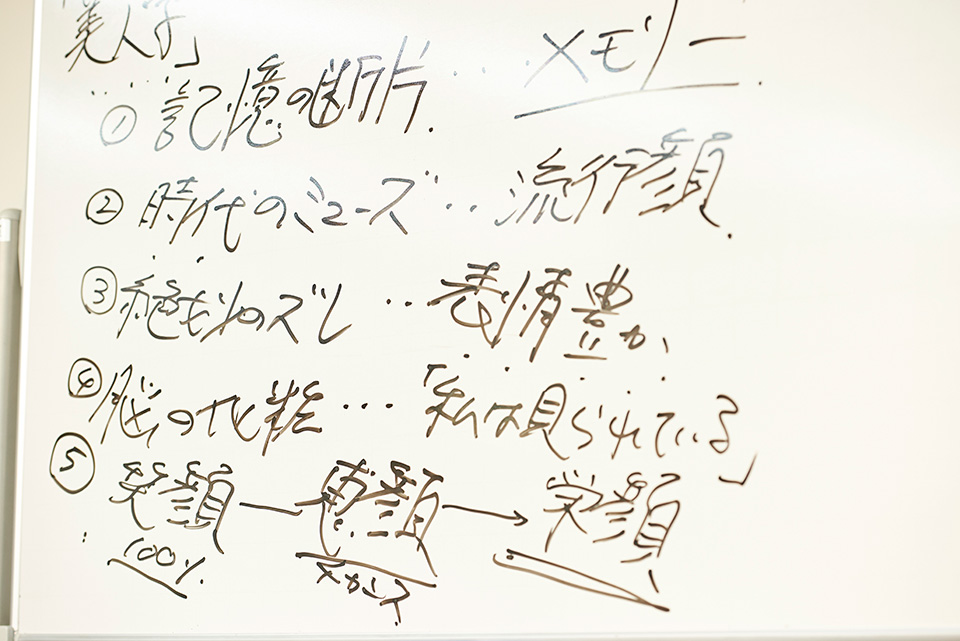 「美人学」
① 記憶の断片.... メモリー.
② 時代のミューズ... 流行顔.
③ 絶妙のズレ ...表情豊か、
④ 脳の化粧...「私は見られている」
⑤ 笑顔 — 恵顔 → 学顔
100%